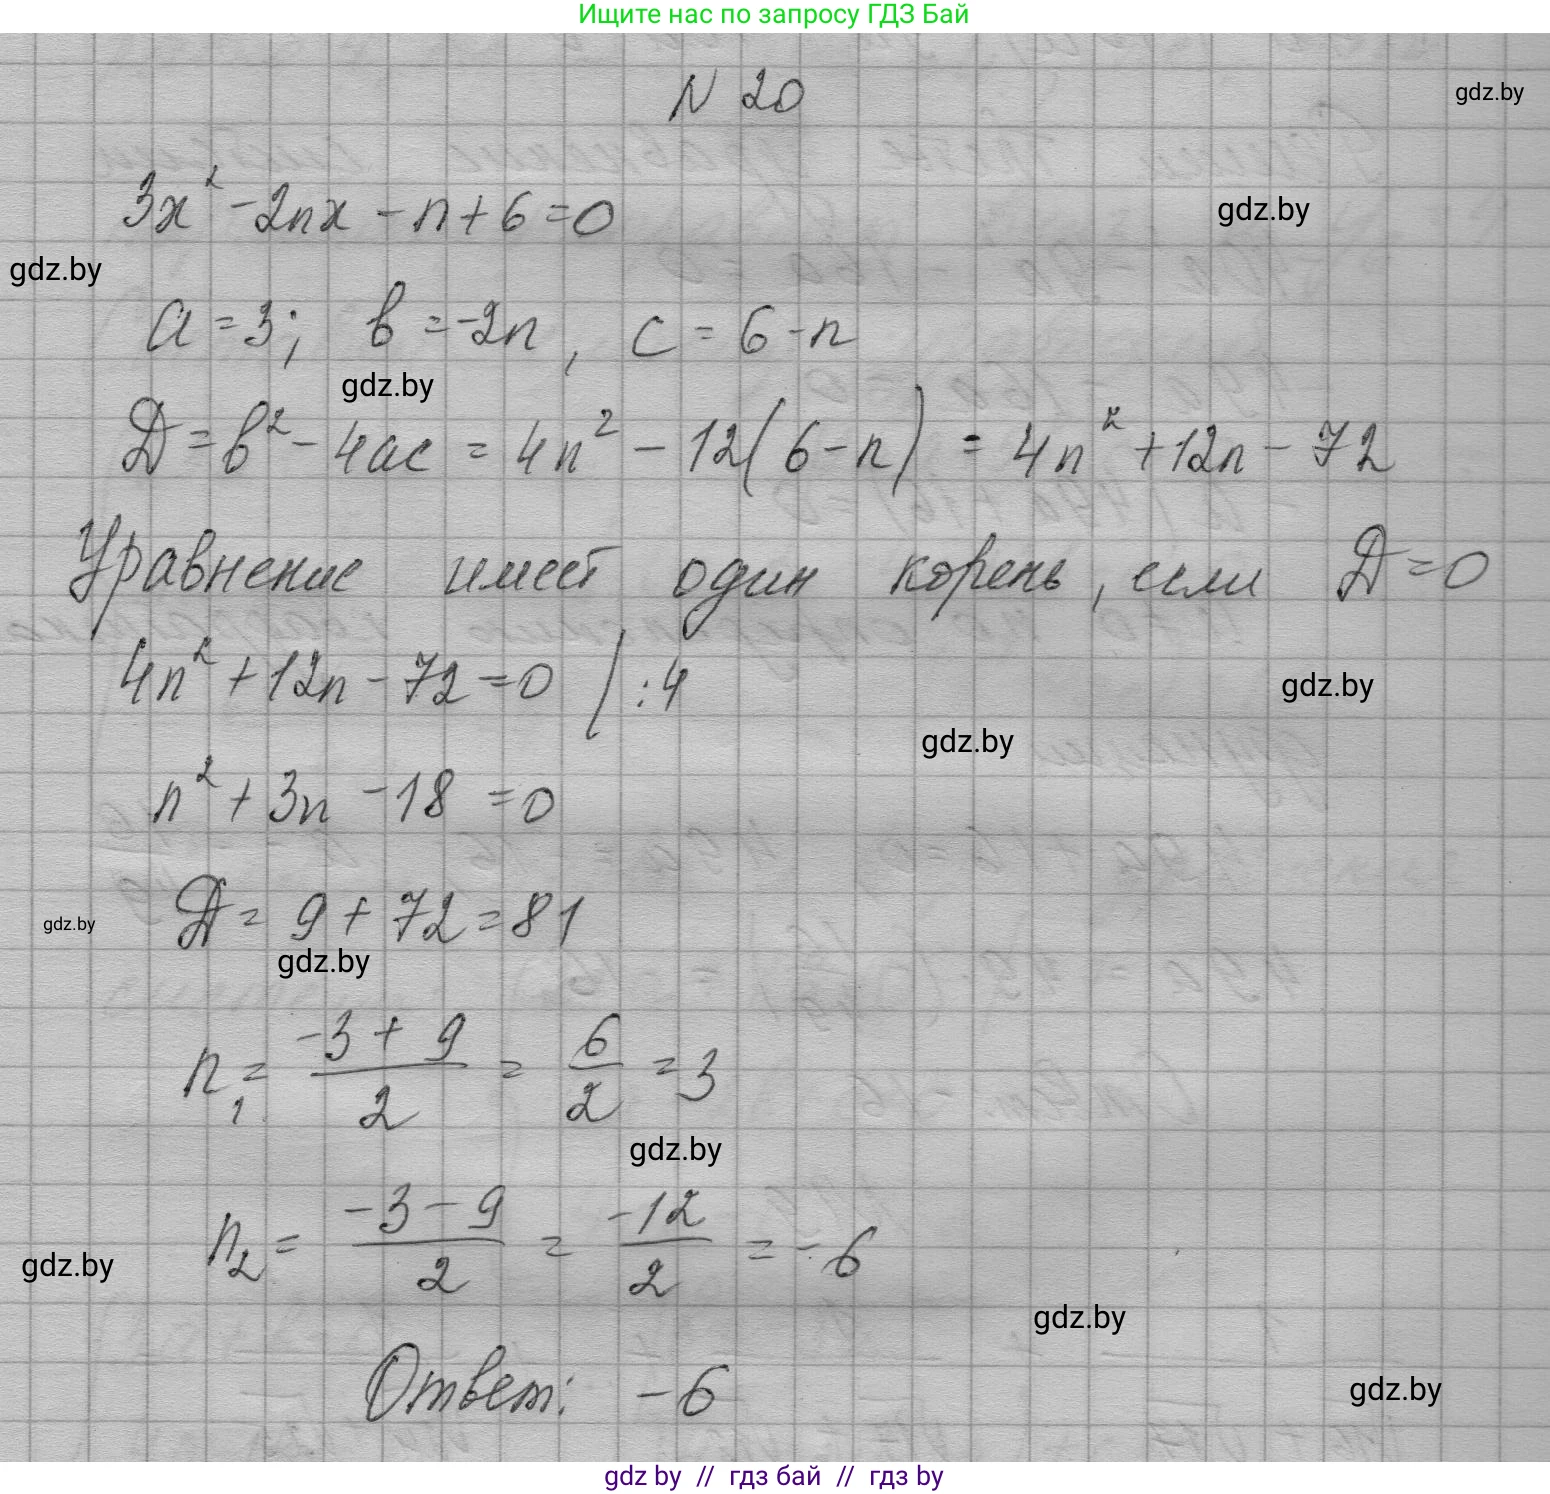 Ищите нас по запросу ГДЗ Бай
N 20
gdz.by
3x² - 2nx - n + 6 = 0
gdz.by
gdz.by
a = 3; в = -2n, c = 6 - n
gdz.by
Д = в² - 4ac = 4n² - 12(6 - n) = 4n² + 12n - 72
Уравнение имеет один корень, если Д = 0
4n² + 12n - 72 = 0 / :4
gdz.by
gdz.by
n² + 3n - 18 = 0
Д = 9 + 72 = 81
gdz.by
gdz.by
n₁ = (-3 + 9)/2 = 6/2 = 3
gdz.by
n₂ = (-3 - 9)/2 = -12/2 = -6
gdz.by
gdz.by
Ответ: -6
gdz.by
gdz by // гдз бай // гдз by